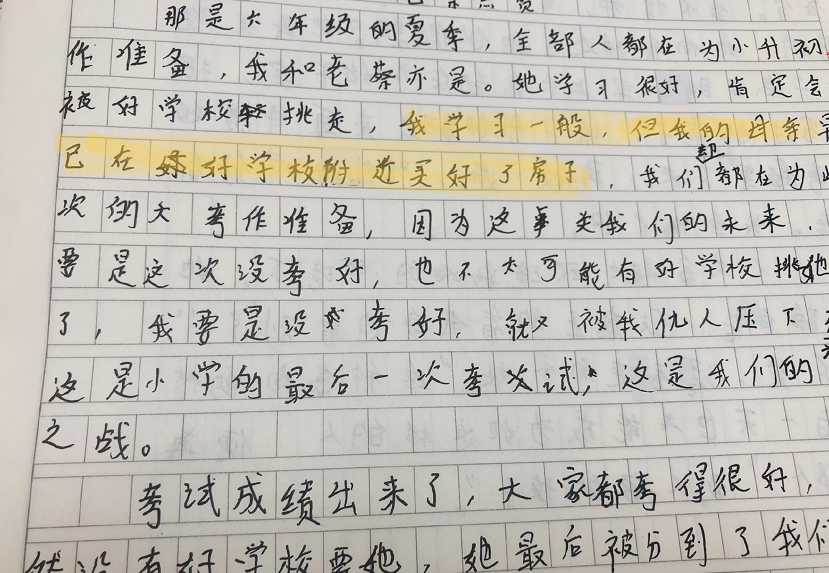 那是六年级的夏季，全部人都在为小升初
作准备，我和老蔡亦是。她学习很好，肯定会
被好学校挑走，我学习一般，但我的母亲早
已在好学校附近买好了房子，我们都在为此
次的大考作准备，因为这事关我们的未来，
要是这次没考好，也不太可能有好学校挑她
了，我要是没考好，就又被我仇人压下
这是小学的最后一次考试，这是我们的
之战。
考试成绩出来了，大家都考得很好，
然没有好学校要她，她最后被分到了我们